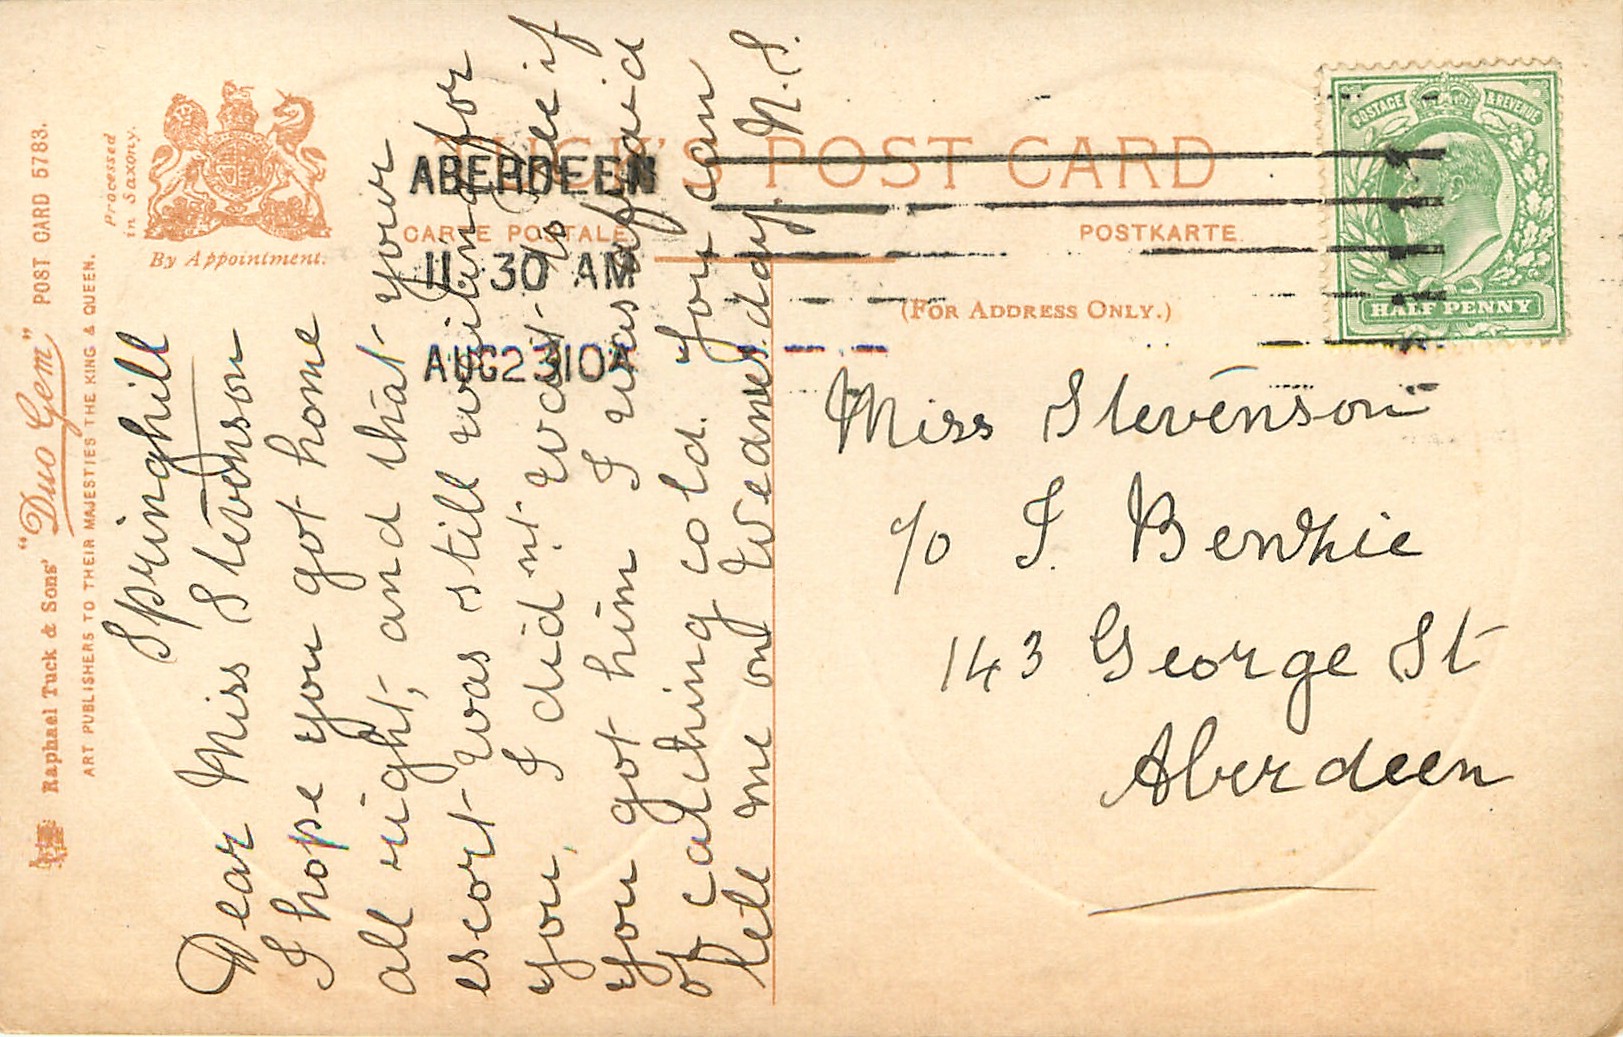 Raphael Tuck & Sons' "Duo Gem" POST CARD 5783.
ART PUBLISHERS TO THEIR MAJESTIES THE KING & QUEEN.
Processed
in Saxony.
By Appointment.
TUCK'S POST CARD
CARTE POSTALE
POSTKARTE
(FOR ADDRESS ONLY.)
ABERDEEN
11.30 AM
AUG 23 10
POSTAGE & REVENUE
HALF PENNY
Springhill
Dear Miss Stevenson
I hope you got home
all right, and that your
escort was still waiting for
you, I did n't wait to see if
you got him I was afraid
of catching cold. You can
tell me on Weansday. N.S.
Miss Stevenson
c/o J. Benzie
143 George St
Aberdeen